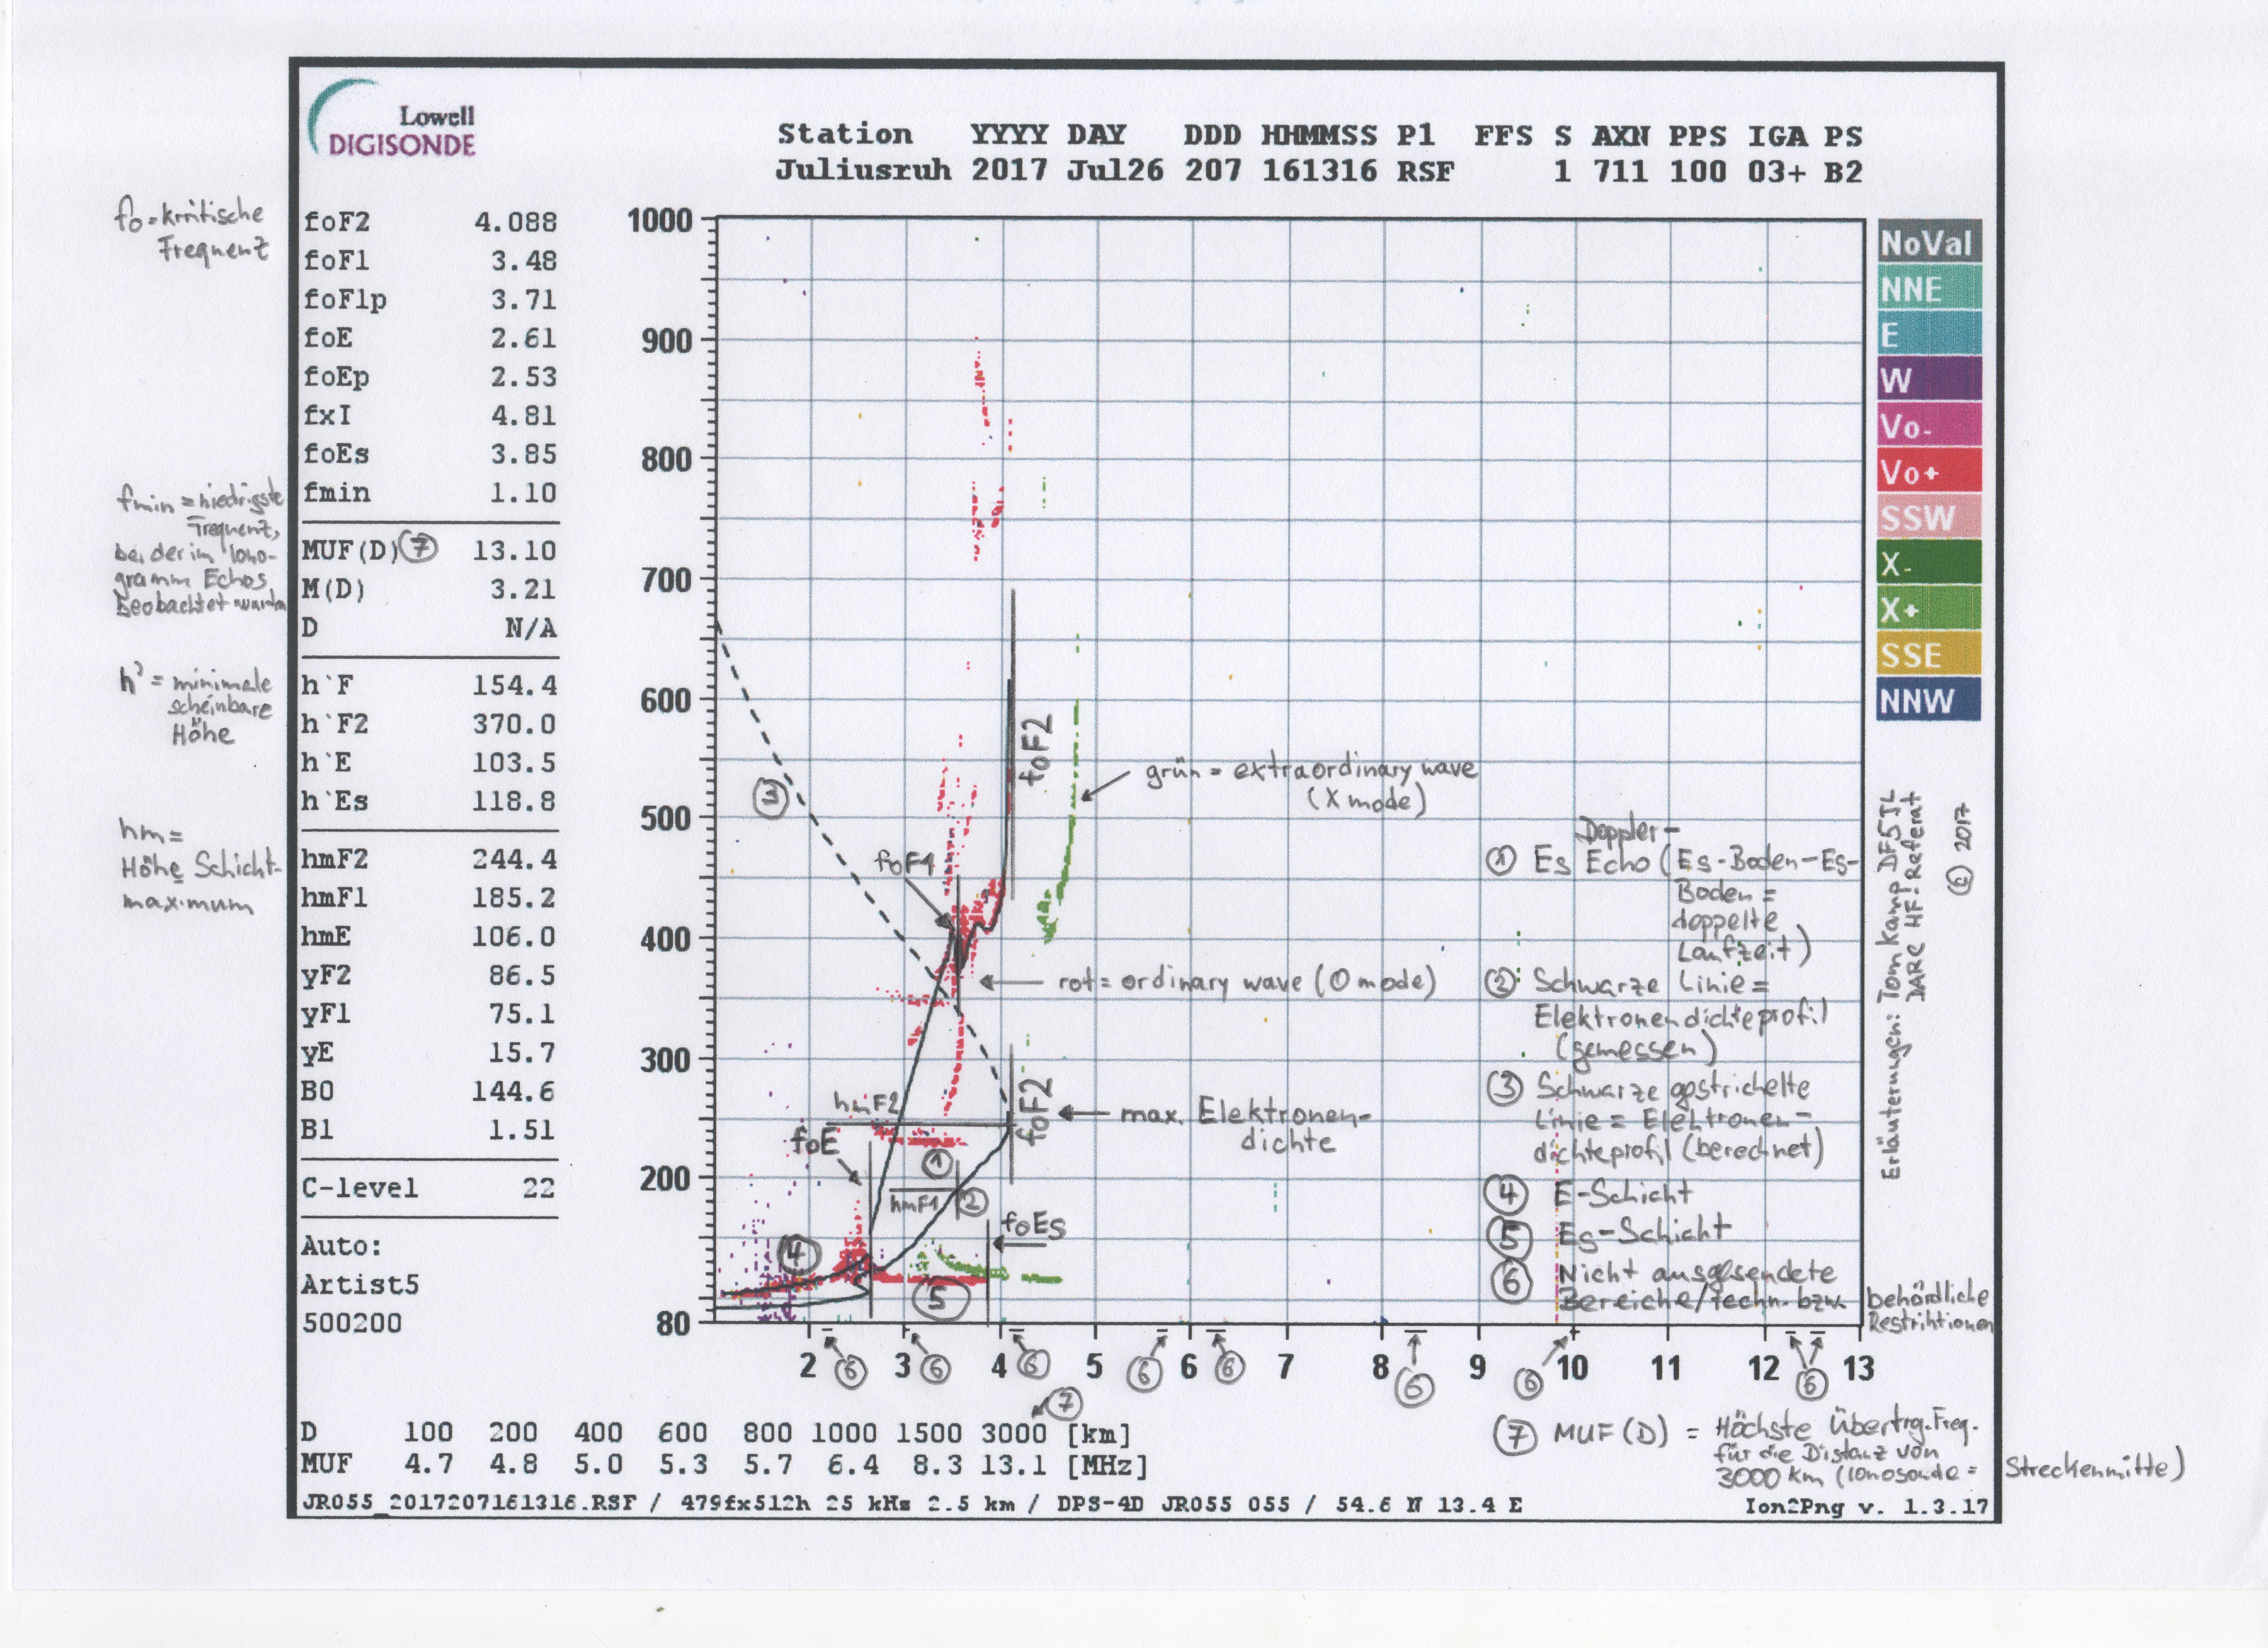 Lowell
DIGISONDE
Station YYYY DAY DDD HHMMSS P1 FFS S AXN PPS IGA PS
Juliusruh 2017 Jul26 207 161316 RSF 1 711 100 03+ B2
fo = kritische
Frequenz
fmin = niedrigste
Frequenz,
bei der im Iono-
gramm Echos
beobachtet wurden
h' = minimale
scheinbare
Höhe
hm =
Höhe Schicht-
maximum
foF2 4.088
foF1 3.48
foF1p 3.71
foE 2.61
foEp 2.53
fxI 4.81
foEs 3.85
fmin 1.10
MUF(D) ⑦ 13.10
M(D) 3.21
D N/A
h`F 154.4
h`F2 370.0
h`E 103.5
h`Es 118.8
hmF2 244.4
hmF1 185.2
hmE 106.0
yF2 86.5
yF1 75.1
yE 15.7
B0 144.6
B1 1.51
C-level 22
Auto:
Artist5
500200
1000
900
800
700
600
500
400
300
200
80
③
foF2
grün = extraordinary wave
(X mode)
foF1
rot = ordinary wave (O mode)
hmF2
foF2
max. Elektronen-
dichte
foE
①
hmF1
②
foEs
④
⑤
Doppler-
① Es Echo (Es-Boden-Es-
Boden =
doppelte
Laufzeit)
② Schwarze Linie =
Elektronendichteprofil
(gemessen)
③ Schwarze gestrichelte
Linie = Elektronen-
dichteprofil (berechnet)
④ E-Schicht
⑤ Es-Schicht
⑥ Nicht ausgesendete
Bereiche/techn. bzw. behördliche
Restriktionen
NoVal
NNE
E
W
Vo-
Vo+
SSW
X-
X+
SSE
NNW
Erläuterungen: Tom Kamp DF5JL
DARC HF-Referat
© 2017
2 3 4 5 6 7 8 9 10 11 12 13
⑥ ⑥ ⑥ ⑥ ⑥ ⑥ ⑥ ⑥
⑦
D 100 200 400 600 800 1000 1500 3000 [km]
MUF 4.7 4.8 5.0 5.3 5.7 6.4 8.3 13.1 [MHz]
⑦ MUF (D) = Höchste Übertrg.Freq.
für die Distanz von
3000 km (Ionosonde = Streckenmitte)
JR055_2017207161316.RSF / 479fx512h 25 kHz 2.5 km / DPS-4D JR055 055 / 54.6 N 13.4 E
Ion2Png v. 1.3.17